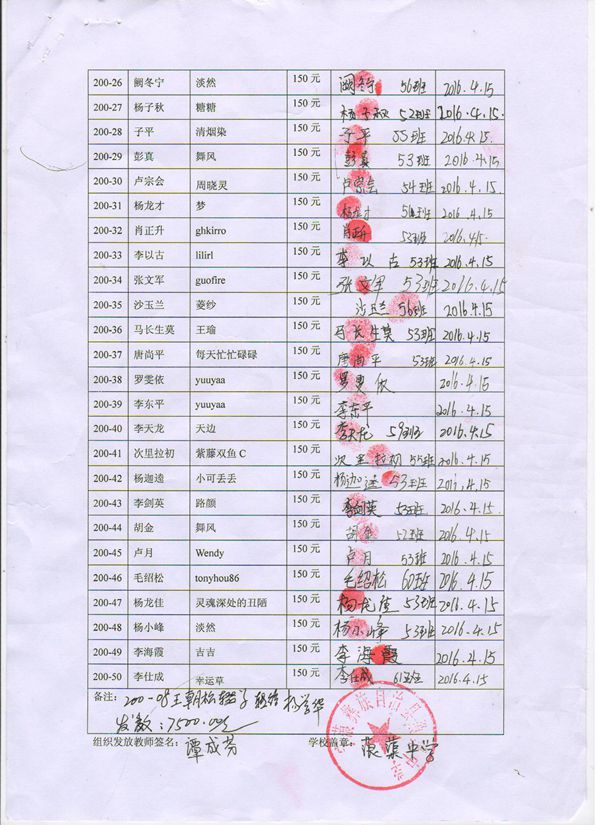 200-26 阙冬宁 淡然 150 元 阙冬宁 56班 2016.4.15
200-27 杨子秋 糖糖 150 元 杨子秋 52班 2016.4.15
200-28 子平 清烟染 150 元 子平 55班 2016.4.15
200-29 彭真 舞风 150 元 彭真 53班 2016.4.15
200-30 卢宗会 周晓灵 150 元 卢宗会 54班 2016.4.15
200-31 杨龙才 梦 150 元 杨龙才 2016.4.15
200-32 肖正升 ghkirro 150 元 肖正升 53班 2016.4.15
200-33 李以古 lilirl 150 元 李以古 53班 2016.4.15
200-34 张文军 guofire 150 元 张文军 53班 2016.4.15
200-35 沙玉兰 菱纱 150 元 沙玉兰 56班 2016.4.15
200-36 马长生莫 王瑜 150 元 马长生莫 53班 2016.4.15
200-37 唐尚平 每天忙忙碌碌 150 元 唐尚平 53班 2016.4.15
200-38 罗雯依 yuuyaa 150 元 罗雯依 2016.4.15
200-39 李东平 yuuyaa 150 元 李东平 2016.4.15
200-40 李天龙 天边 150 元 李天龙 59班 2016.4.15
200-41 次里拉初 紫藤双鱼 C 150 元 次里拉初 55班 2016.4.15
200-42 杨迦逵 小可丢丢 150 元 53班 4.15
200-43 李剑英 路颜 150 元 李剑英 53班 2016.4.15
200-44 胡金 舞风 150 元 胡金 52班 2016.4.15
200-45 卢月 Wendy 150 元 卢月 53班 2016.4.15
200-46 毛绍松 tonyhou86 150 元 毛绍松 60班 2016.4.15
200-47 杨龙佳 灵魂深处的丑陋 150 元 杨龙佳 53班 2016.4.15
200-48 杨小峰 淡然 150 元 杨小峰 53班 2016.4.15
200-49 李海霞 吉吉 150 元 李海霞 2016.4.15
200-50 李仕成 幸运草 150 元 李仕成 61班 2016.4.15
备注: 200-08王朝 杨学华
发放:7500.00元
组织发放教师签名: 谭成芳 学校盖章: 蒗蕖中学
彝族自治县